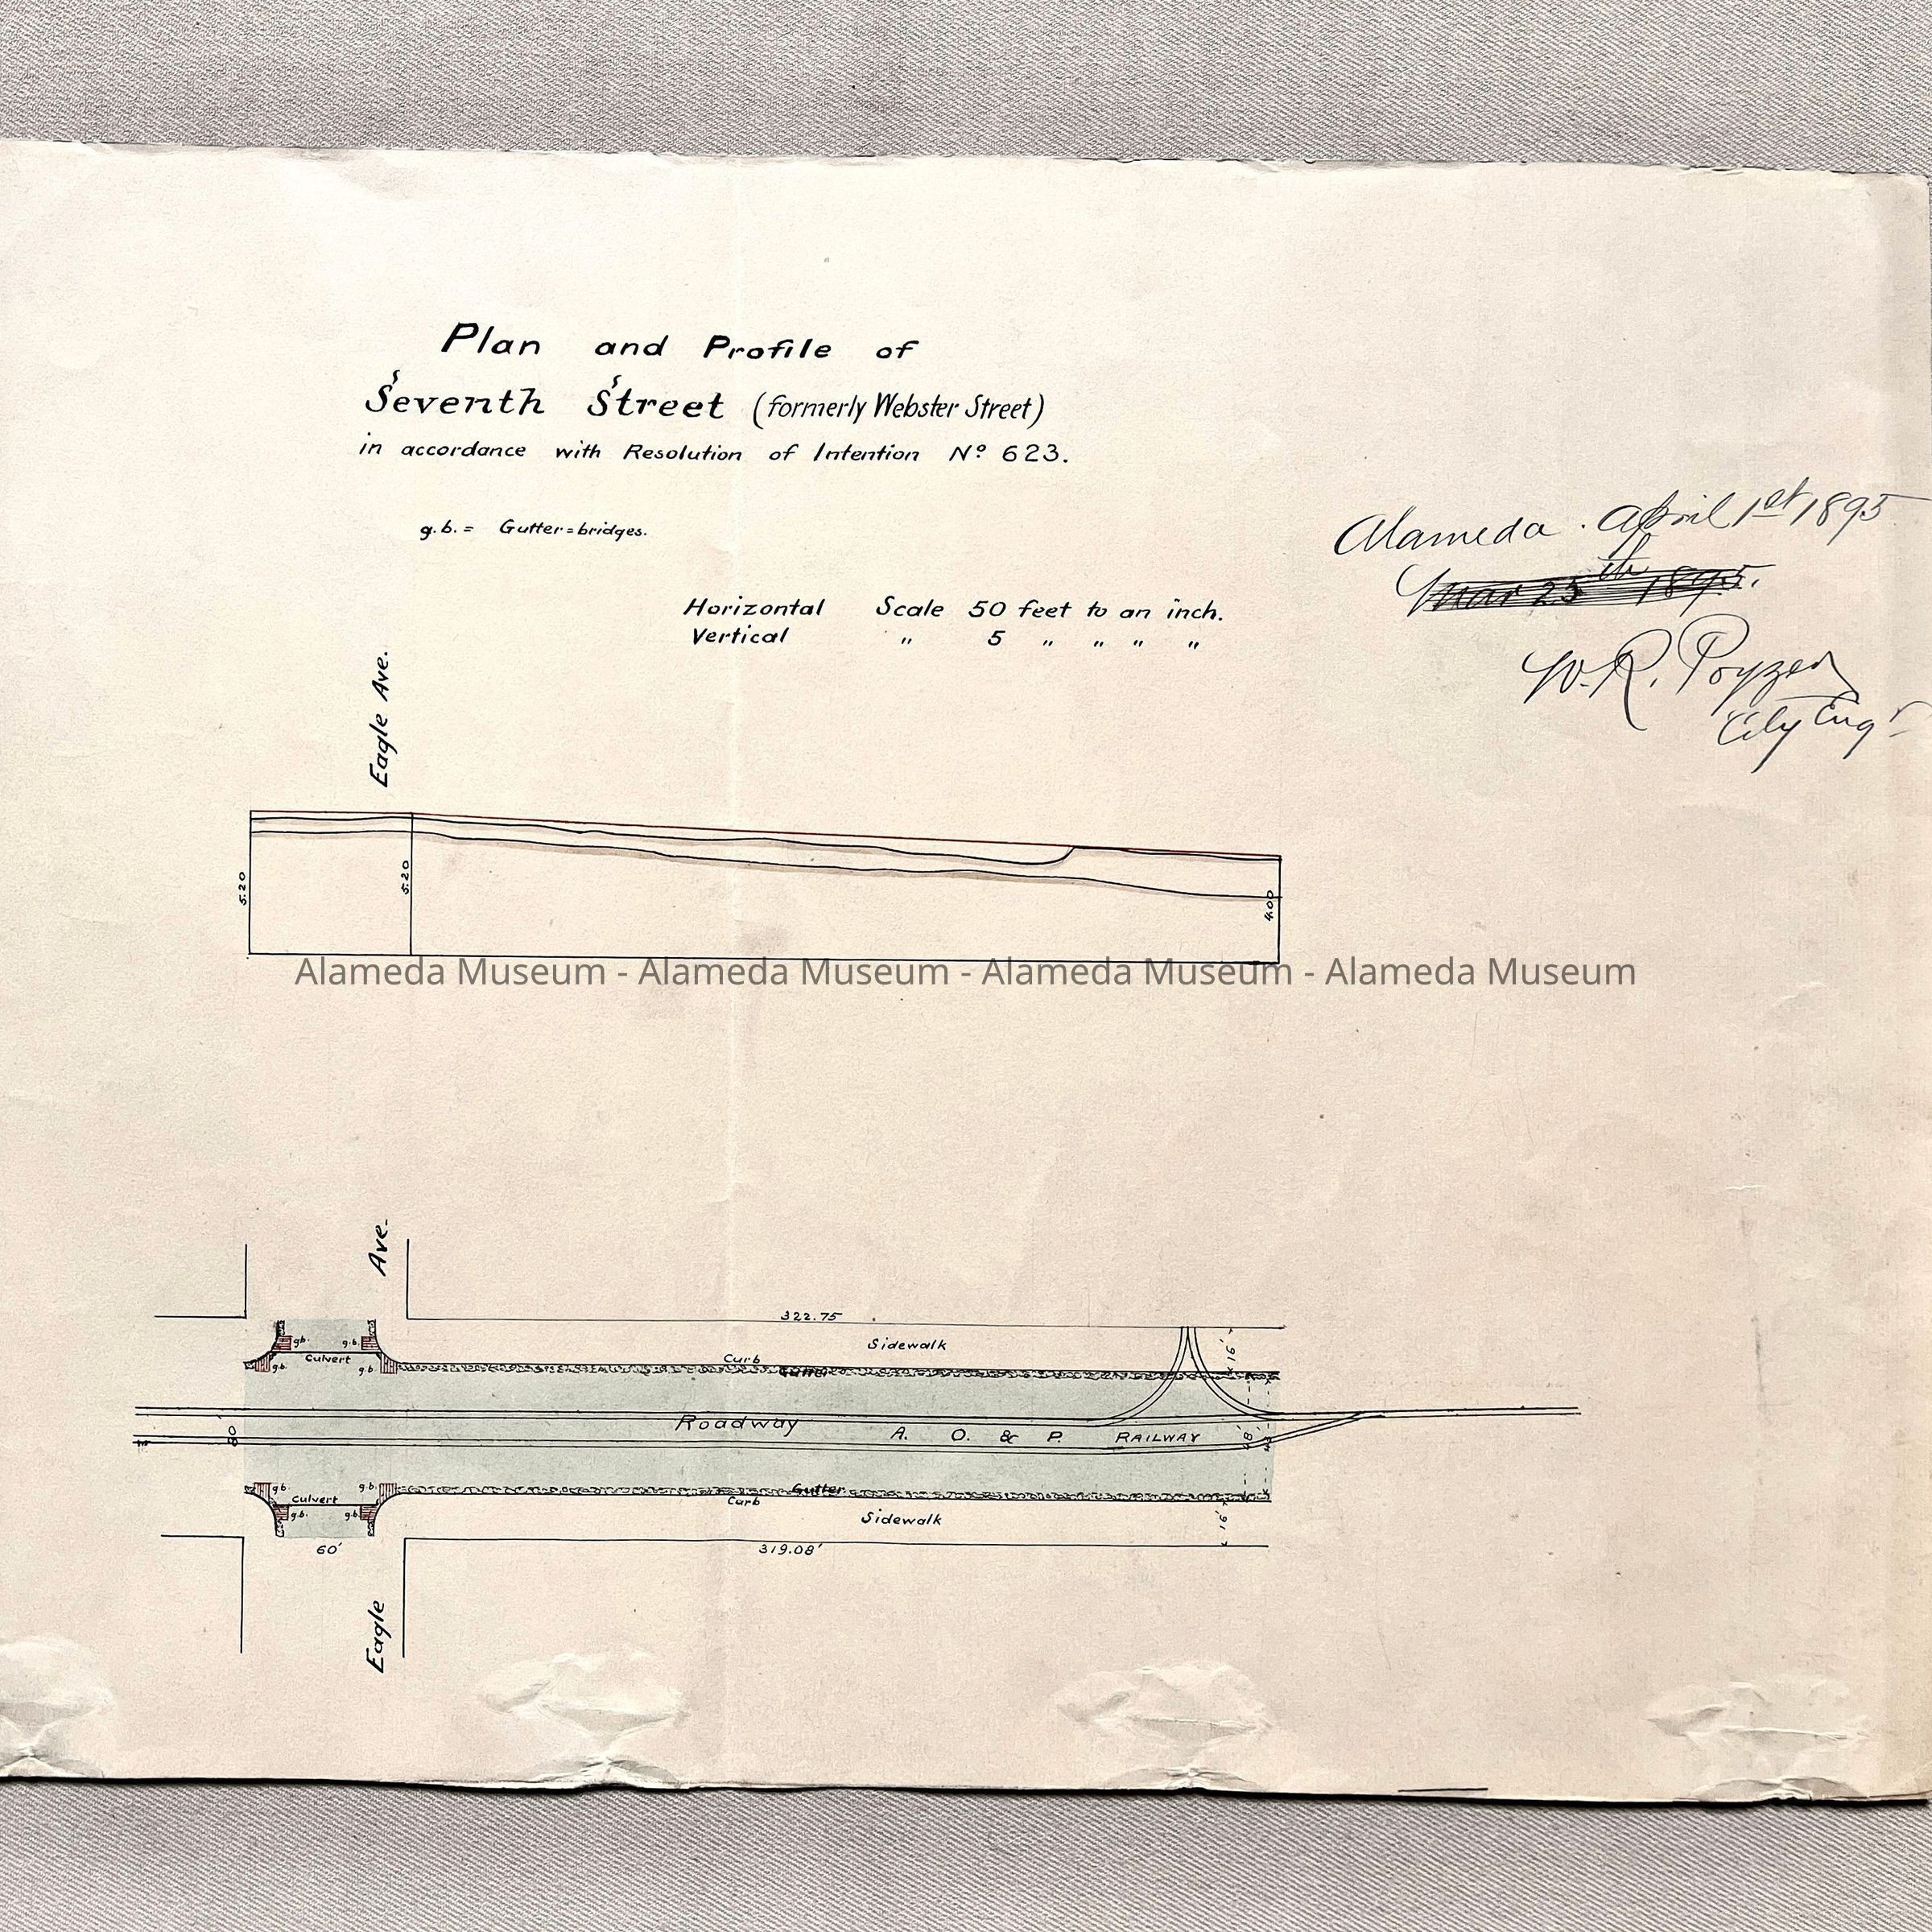 Plan and Profile of
Seventh Street (formerly Webster Street)
in accordance with Resolution of Intention Nº 623.
g.b. = Gutter=bridges.
Horizontal Scale 50 feet to an inch.
Vertical " 5 " " " "
Alameda. April 1st 1895
Mar 25th 1895.
W.R. Poyzer
City Engr
Eagle Ave.
5.20
5.20
4.00
Alameda Museum - Alameda Museum - Alameda Museum - Alameda Museum
Ave.
322.75
Sidewalk
16'
g.b. g.b.
Culvert
g.b. g.b.
Curb
Gutter
Roadway
A. O. & P. RAILWAY
80
48'
g.b. g.b.
Culvert
g.b. g.b.
Gutter
Curb
Sidewalk
16'
60'
319.08'
Eagle